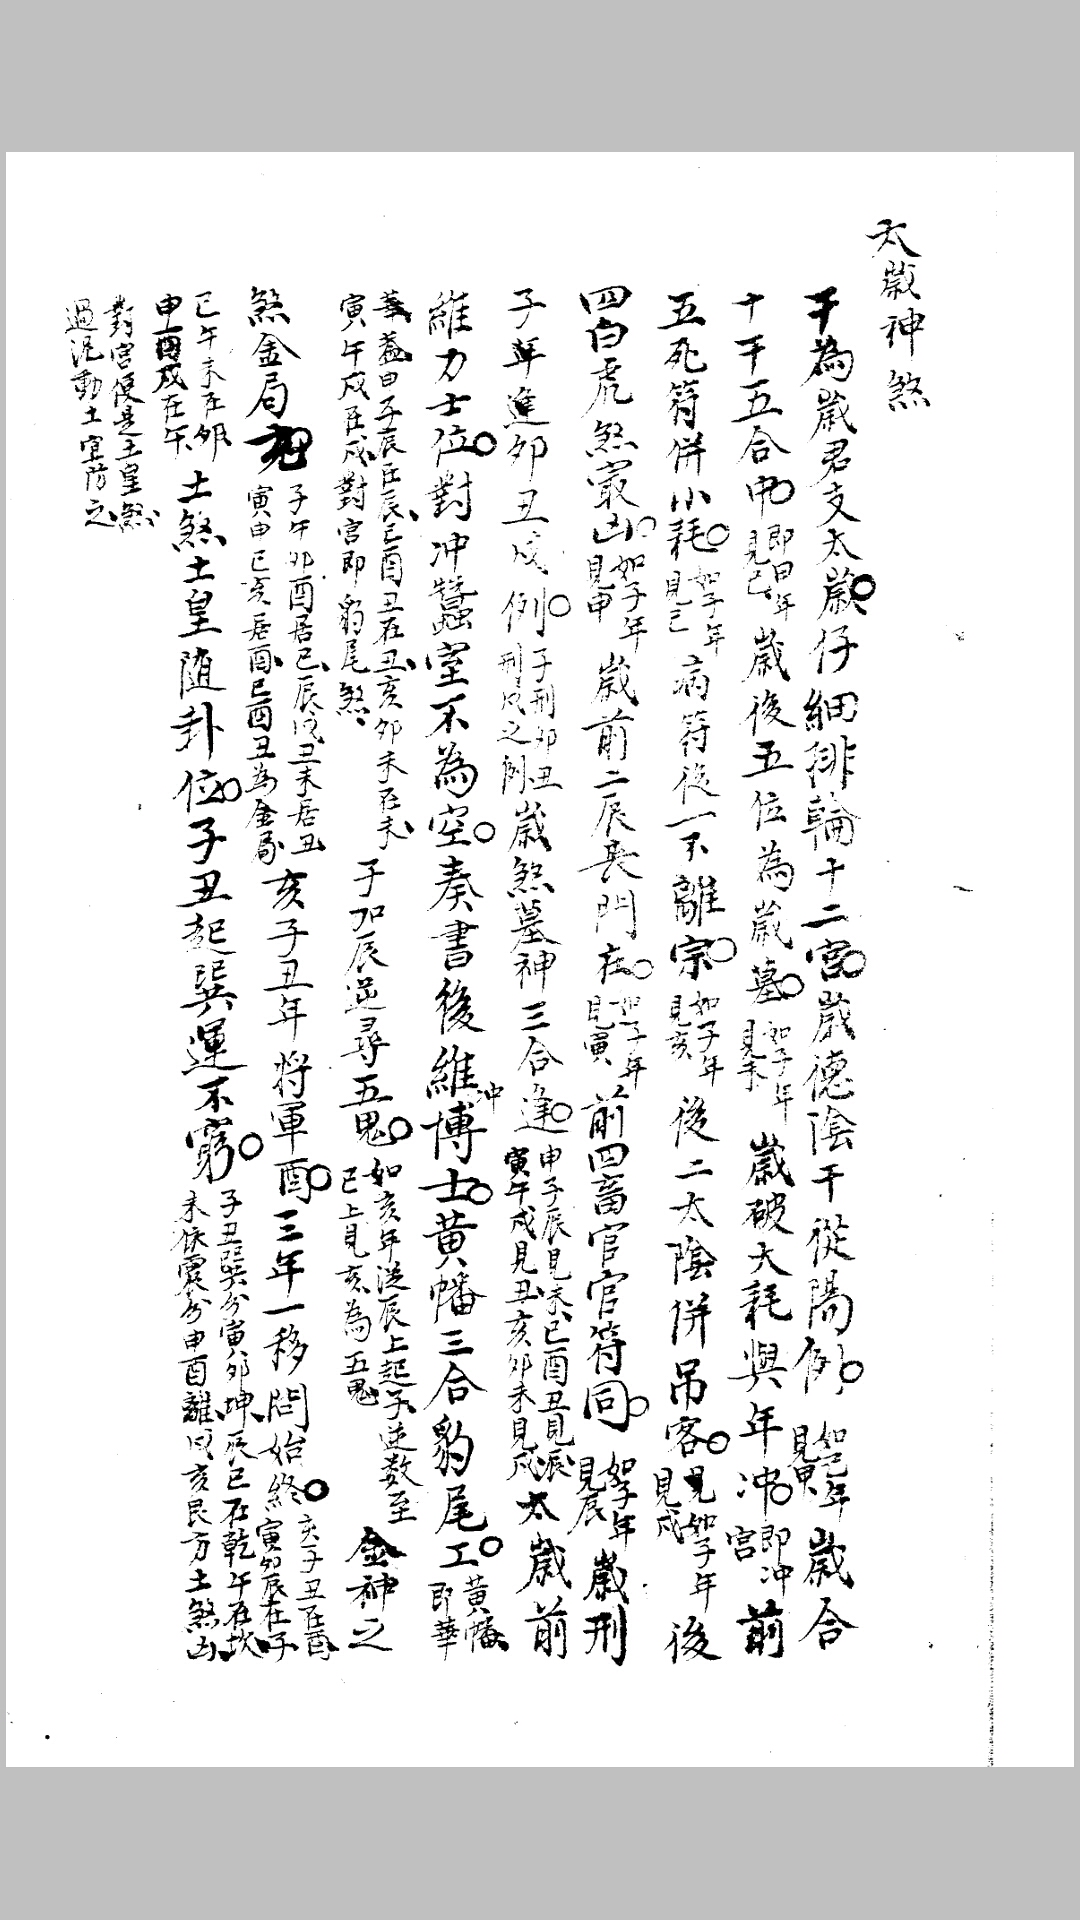 太歲神煞
干為歲君支太歲仔細排輪十二宮歲德陰干從陽例如己年見甲歲合
十干五合中即甲年見己歲後五位為歲墓如子年見未歲破大耗與年冲即冲宮前
五死符併小耗如子年見巳病符後一不離宗如子年見亥後二太陰併吊客如子年見見戌後
四白虎煞最凶如子年見申歲前二辰丧門在如子年見寅前四畜官官符同如子年見辰歲刑
子年進卯丑戌例子刑卯丑刑戌之例歲煞墓神三合逢申子辰見未巳酉丑見辰寅午戌見丑亥卯未見戌太歲前
維力士位對冲蠶室不為空奏書後維冲博士黃幡三合豹尾工黃幡即華
華蓋申子辰在辰巳酉丑在丑亥卯未在未寅午戌在戌對宮即豹尾煞子卯辰逆尋五鬼如亥年從辰上起子逆数至巳上見亥為五鬼金神之
煞金局子午卯酉居巳辰戌丑未居丑寅申巳亥居酉巳酉丑為金局亥子丑年将軍酉三年一移問始終亥子丑在酉寅卯辰在子
巳午未在卯申酉戌在午土煞土皇随卦位子丑起巽運不窮子丑巽分寅卯坤辰巳在乾午在坎未依震分申酉離戌亥艮方土煞凶
對宮便是土皇煞
過泥動土宜防之